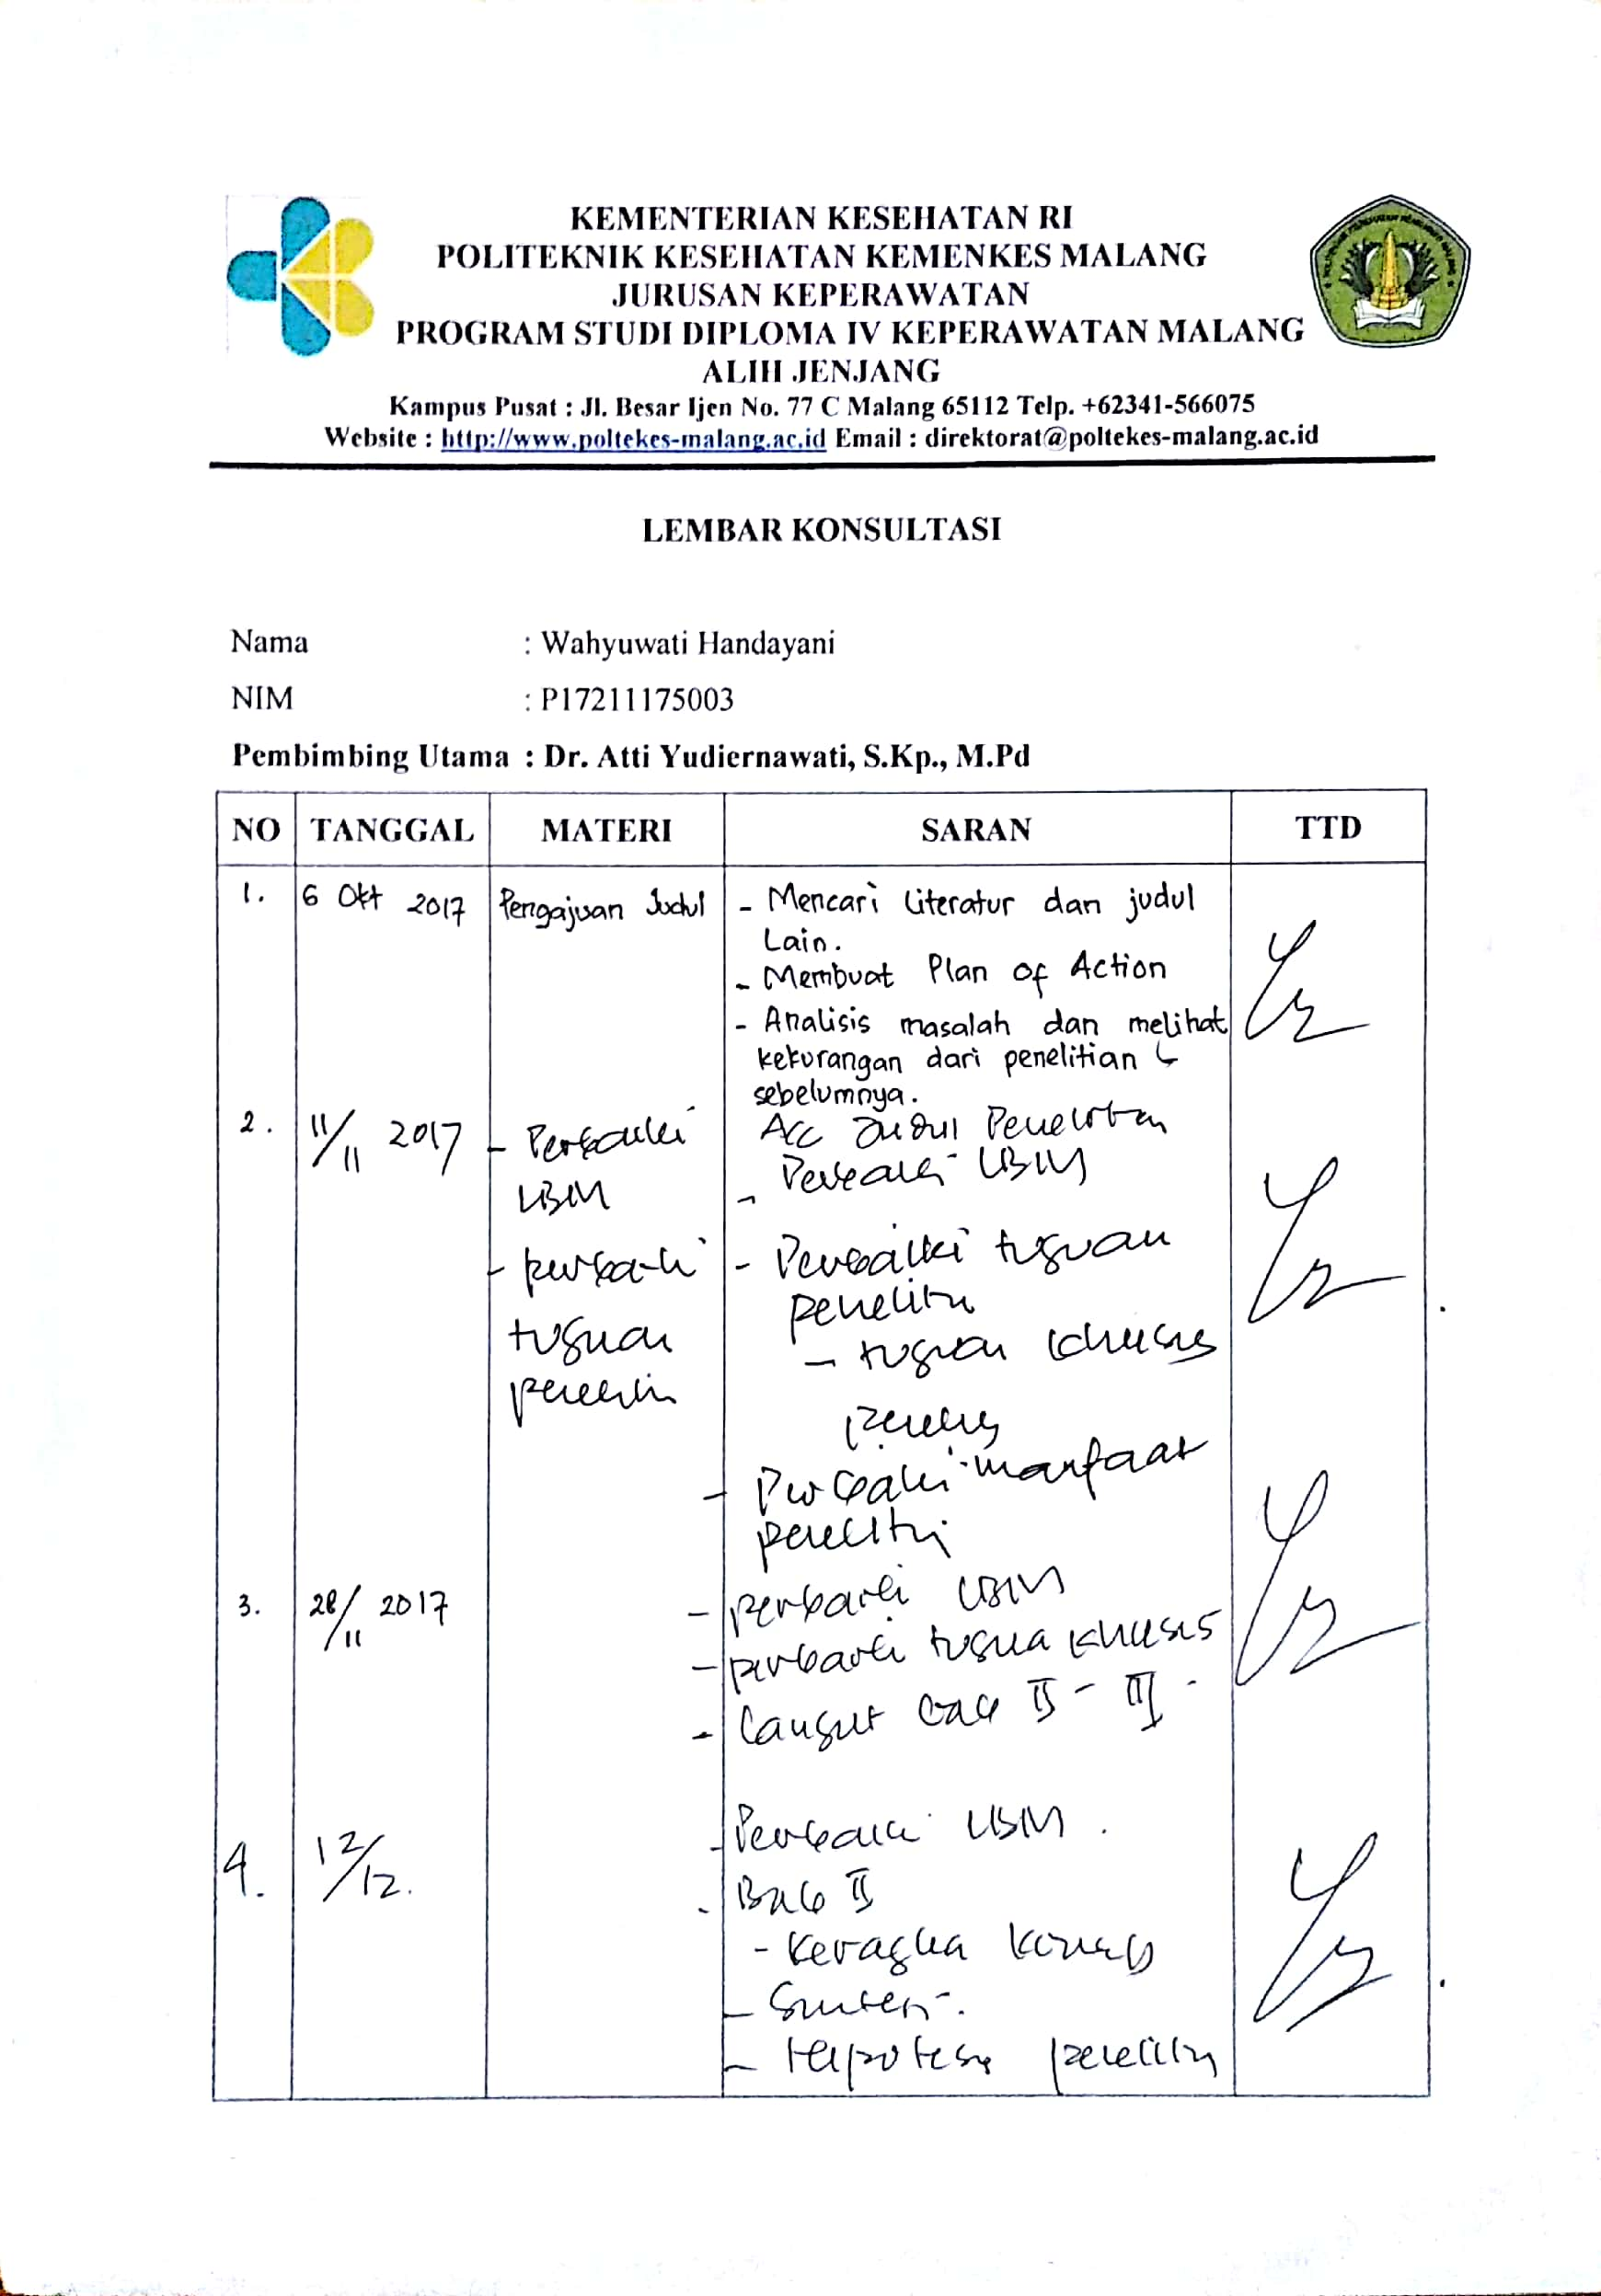 KEMENTERIAN KESEHATAN RI
POLITEKNIK KESEHATAN KEMENKES MALANG
JURUSAN KEPERAWATAN
PROGRAM STUDI DIPLOMA IV KEPERAWATAN MALANG
ALIH JENJANG
Kampus Pusat : Jl. Besar Ijen No. 77 C Malang 65112 Telp. +62341-566075
Website : http://www.poltekes-malang.ac.id Email : direktorat@poltekes-malang.ac.id
LEMBAR KONSULTASI
Nama : Wahyuwati Handayani
NIM : P17211175003
Pembimbing Utama : Dr. Atti Yudiernawati, S.Kp., M.Pd
NO TANGGAL MATERI SARAN TTD
1. 6 Okt 2017 Pengajuan Judul - Mencari Literatur dan judul
Lain.
- Membuat Plan of Action
- Analisis masalah dan melihat
kekurangan dari penelitian
sebelumnya.
2. 11/11 2017 - Perbaiki Acc Judul Penelitian
LBM - Perbaiki LBM
- perbaiki - Perbaiki tujuan
penelitian
tujuan - tujuan khusus
penelitian
- Perbaiki manfaat
penelitian
3. 28/11 2017 - perbaiki LBM
- perbaiki tujuan khusus
- Lanjut bab II - III
4. 12/12. - Perbaiki LBM.
- Bab II
- Kerangka konsep
- hipotesis penelitian